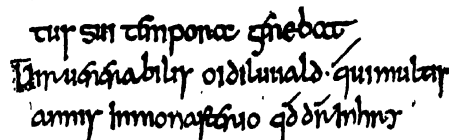 tus sui tempora gerebat
Uir uenerabilis oidiluuald· qui multis
annis in monasterio qđ dr̄